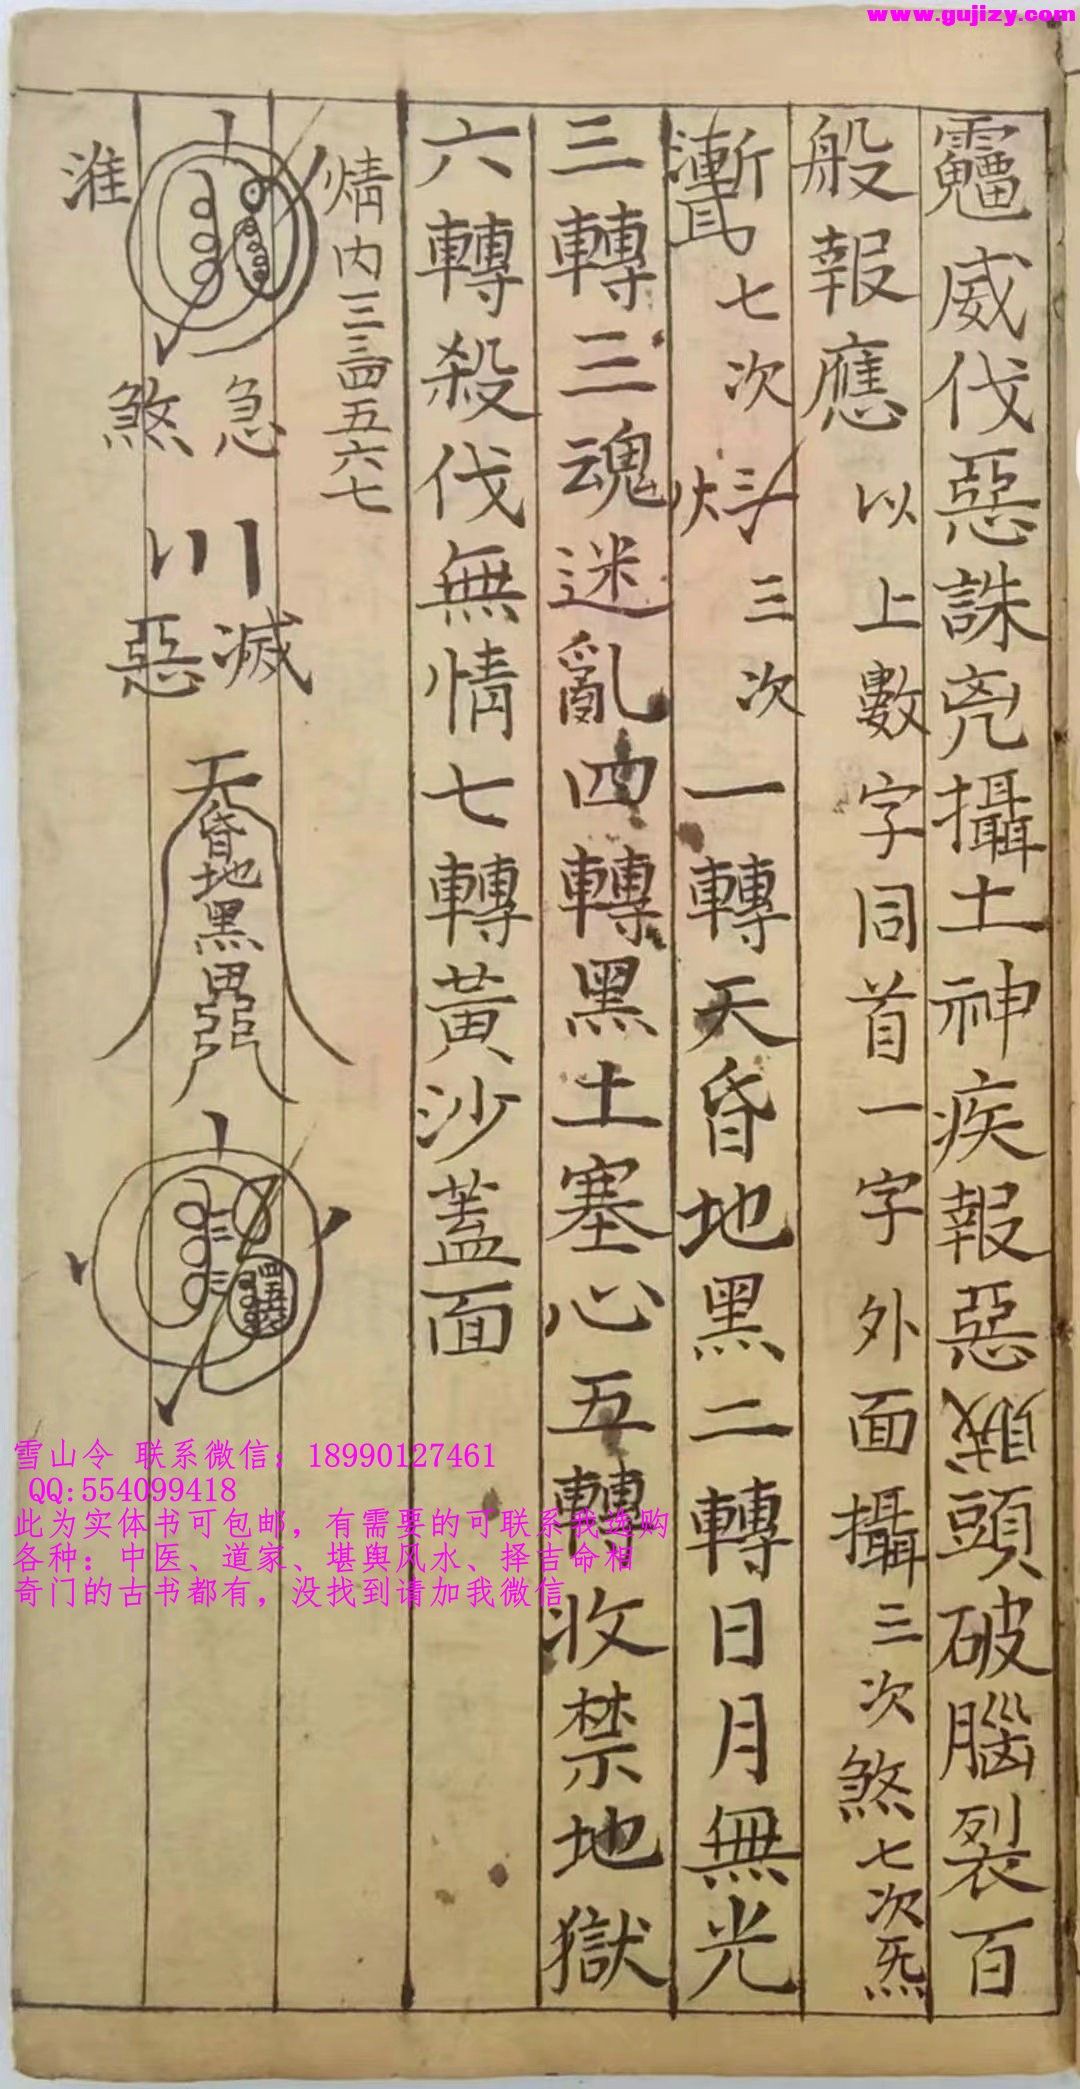 www.gujizy.com
威伐惡誅兇攝土神疾報惡頭破腦裂百
般報應以上數字同首一字外面攝三次煞七次炁
七次三次一轉天昏地黑二轉日月無光
三轉三魂迷亂四轉黑土塞心五轉收禁地獄
六轉殺伐無情七轉黃沙蓋面
情內三三四五六七
急
煞
滅
惡
天昏地黑
雪山令 联系微信：18990127461
QQ:554099418
此为实体书可包邮，有需要的可联系我选购
各种：中医、道家、堪舆风水、择吉命相
奇门的古书都有，没找到请加我微信